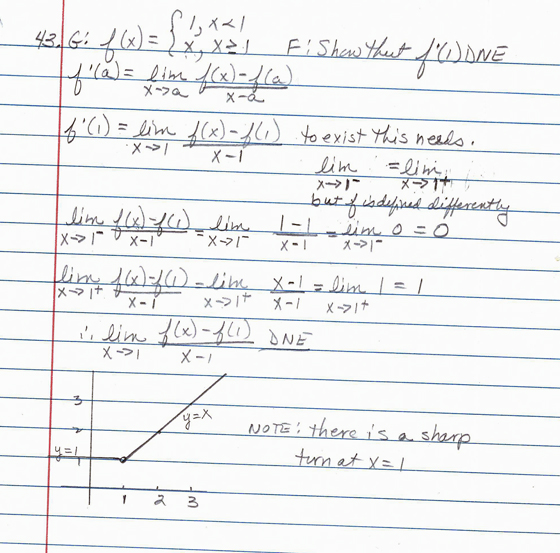 43. G: f(x) = { 1, x<1
x, x≥1 F: Show that f'(1) DNE
f'(a) = lim x→a f(x)-f(a) / x-a
f'(1) = lim x→1 f(x)-f(1) / x-1 to exist this needs.
lim x→1⁻ = lim x→1⁺
but f is defined differently
lim x→1⁻ f(x)-f(1) / x-1 = lim x→1⁻ 1-1 / x-1 = lim x→1⁻ 0 = 0
lim x→1⁺ f(x)-f(1) / x-1 = lim x→1⁺ x-1 / x-1 = lim x→1⁺ 1 = 1
∴ lim x→1 f(x)-f(1) / x-1 DNE
3
y=x
2
NOTE: there is a sharp
y=1
1
turn at x=1
1 2 3